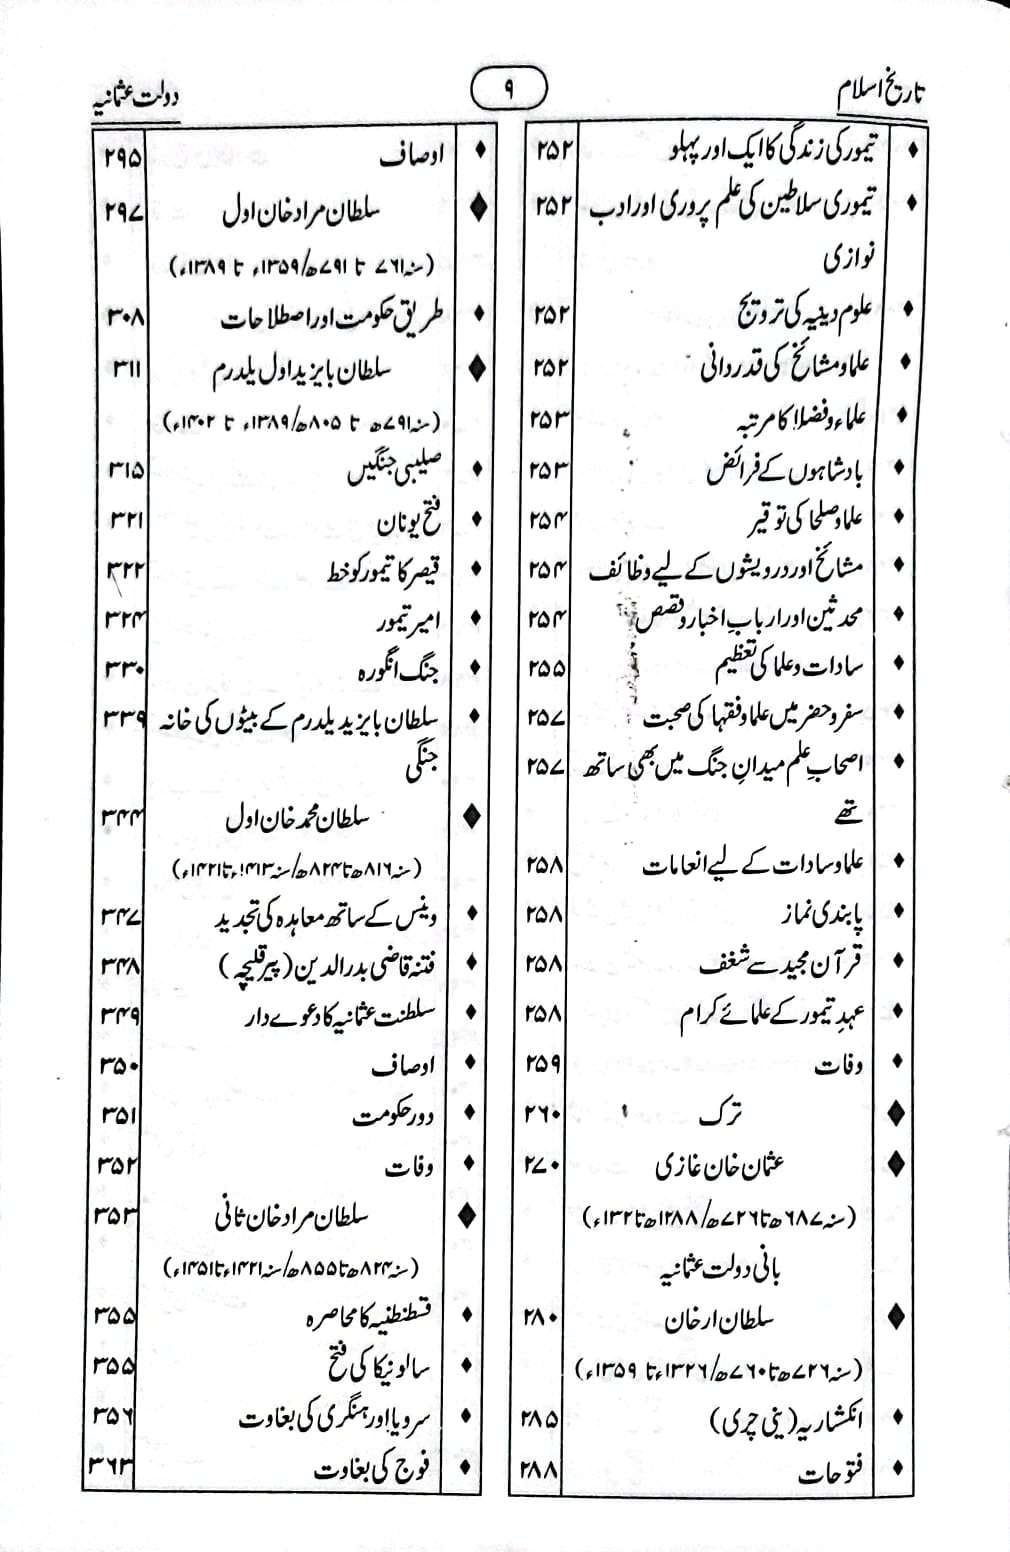 تاریخ اسلام
۹
دولت عثمانیہ
♦ تیمور کی زندگی کا ایک اور پہلو ۲۵۲
♦ تیموری سلاطین کی علم پروری اور ادب ۲۵۲
نوازی
♦ علوم دینیہ کی ترویج ۲۵۲
♦ علما و مشائخ کی قدردانی ۲۵۲
♦ علماء و فضلا کا مرتبہ ۲۵۳
♦ بادشاہوں کے فرائض ۲۵۳
♦ علما و صلحا کی توقیر ۲۵۴
♦ مشائخ اور درویشوں کے لیے وظائف ۲۵۴
♦ محدثین اور اربابِ اخبار و قصص ۲۵۴
♦ سادات و علما کی تعظیم ۲۵۵
♦ سفر و حضر میں علما و فقہا کی صحبت ۲۵۷
♦ اصحابِ علم میدانِ جنگ میں بھی ساتھ ۲۵۷
تھے
♦ علما و سادات کے لیے انعامات ۲۵۸
♦ پابندی نماز ۲۵۸
♦ قرآن مجید سے شغف ۲۵۸
♦ عہدِ تیمور کے علمائے کرام ۲۵۸
♦ وفات ۲۵۹
◆ ترک ۲۶۰
◆ عثمان خان غازی ۲۷۰
(سنہ ۶۸۷ھ تا ۷۲۶ھ/۱۲۸۸ھ تا ۱۳۲۶ء)
بانی دولت عثمانیہ
◆ سلطان ارخان ۲۸۰
(سنہ ۷۲۶ھ تا ۷۶۰ھ/۱۳۲۶ء تا ۱۳۵۹ء)
♦ انکشاریہ (ینی چری) ۲۸۵
♦ فتوحات ۲۸۸
♦ اوصاف ۲۹۵
◆ سلطان مراد خان اول ۲۹۷
(سنہ ۷۶۱ تا ۷۹۱ھ/۱۳۵۹ء تا ۱۳۸۹ء)
♦ طریق حکومت اور اصطلاحات ۳۰۸
◆ سلطان بایزید اول یلدرم ۳۱۱
(سنہ ۷۹۱ھ تا ۸۰۵ھ/۱۳۸۹ء تا ۱۴۰۲ء)
♦ صلیبی جنگیں ۳۱۵
♦ فتح یونان ۳۲۱
♦ قیصر کا تیمور کو خط ۳۲۲
♦ امیر تیمور ۳۲۴
♦ جنگ انگورہ ۳۳۰
♦ سلطان بایزید یلدرم کے بیٹوں کی خانہ ۳۳۹
جنگی
◆ سلطان محمد خان اول ۳۴۴
(سنہ ۸۱۶ھ تا ۸۲۴ھ/سنہ ۱۴۱۳ء تا ۱۴۲۱ء)
♦ وینس کے ساتھ معاہدہ کی تجدید ۳۴۷
♦ فتنہ قاضی بدرالدین (پیر قلیچہ) ۳۴۸
♦ سلطنت عثمانیہ کا دعوے دار ۳۴۹
♦ اوصاف ۳۵۰
♦ دور حکومت ۳۵۱
♦ وفات ۳۵۲
◆ سلطان مراد خان ثانی ۳۵۳
(سنہ ۸۲۴ھ تا ۸۵۵ھ/سنہ ۱۴۲۱ء تا ۱۴۵۱ء)
♦ قسطنطنیہ کا محاصرہ ۳۵۵
♦ سالونیکا کی فتح ۳۵۵
♦ سرویا اور ہنگری کی بغاوت ۳۵۶
♦ فوج کی بغاوت ۳۶۳